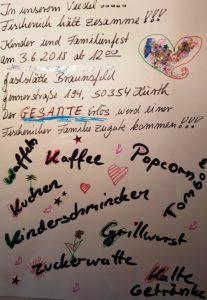 In unserem Veedel .....
Fischenich hält zesamme !!!
Kinder und Familienfest
am 3.6.2018 ab 12 00
Gaststätte Braunsfeld
Gennerstraße 194, 50354 Hürth
Der GESAMTE Erlös wird einer
Fischenicher Familie zugute kommen!!!
Waffeln
Kaffee
Popcorn
Kuchen
Tombola
Kinderschmincken
Grillwurst
Zuckerwatte
Kalte
Getränke